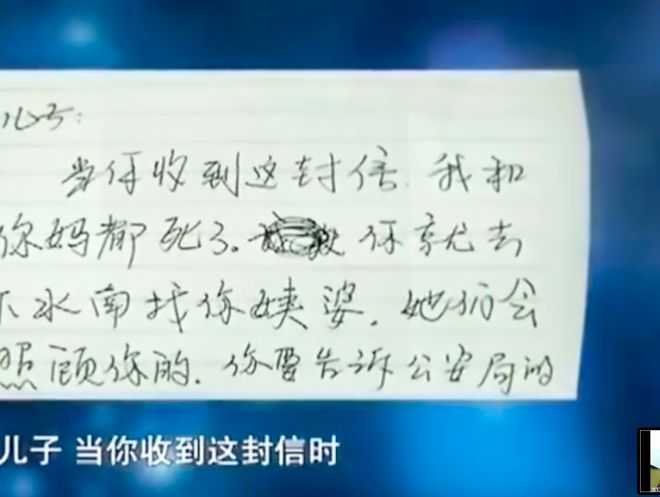 儿子:
当你收到这封信.我和
你妈都死了.你就去
下水南找你姨婆.她们会
照顾你的.你要告诉公安局的
儿子 当你收到这封信时